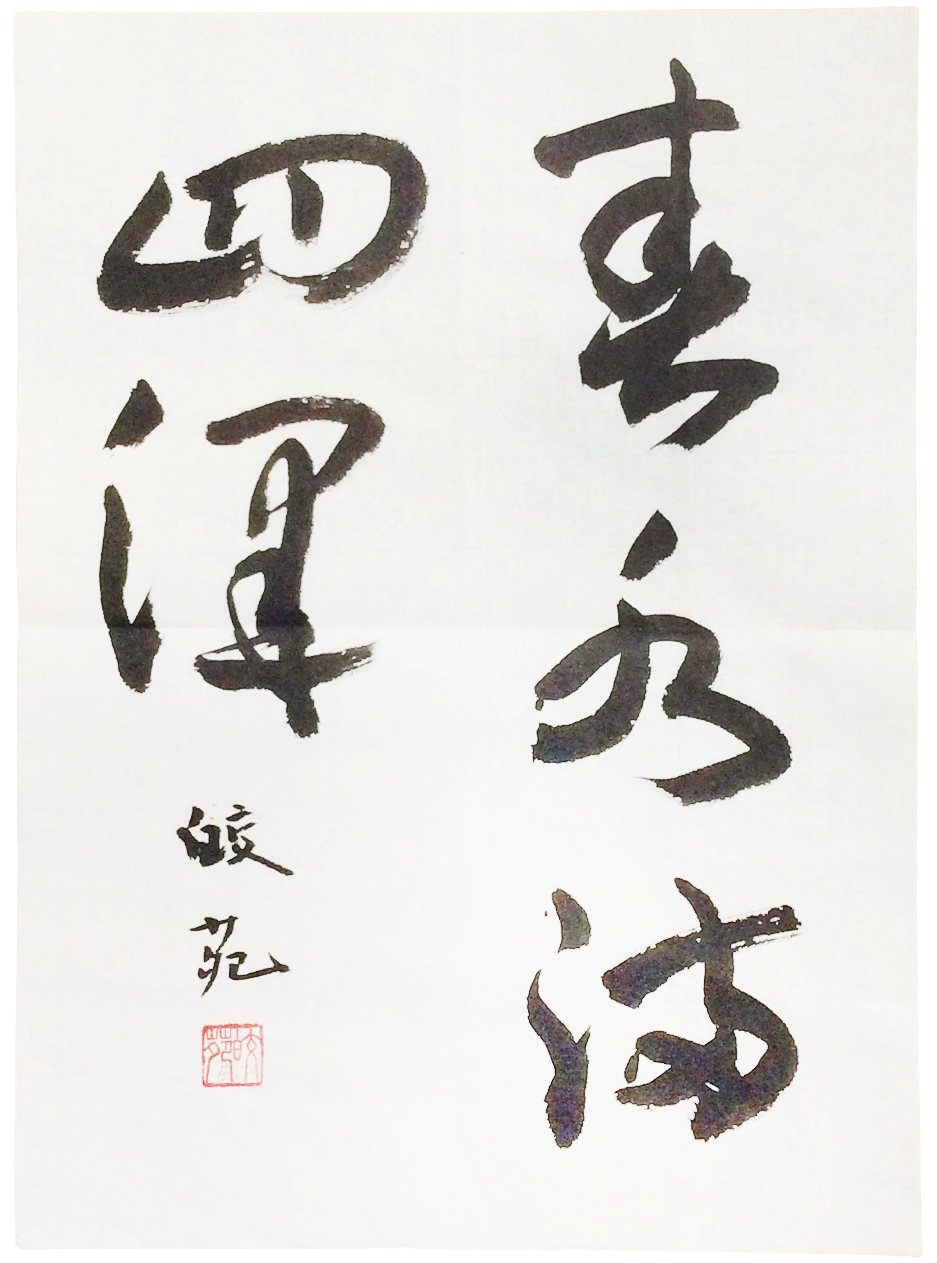 春水満
四澤
皎苑